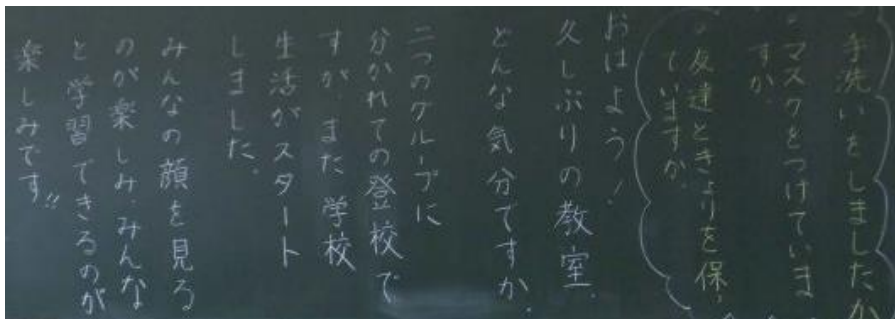 手洗いをしましたか
・マスクをつけていま
すか。
・友達ときょりを保っ
ていますか。
おはよう!
久しぶりの教室、
どんな気分ですか。
二つのグループに
分かれての登校で
すが、また学校
生活がスタート
しました。
みんなの顔を見る
のが楽しみ、みんな
と学習できるのが
楽しみです!!